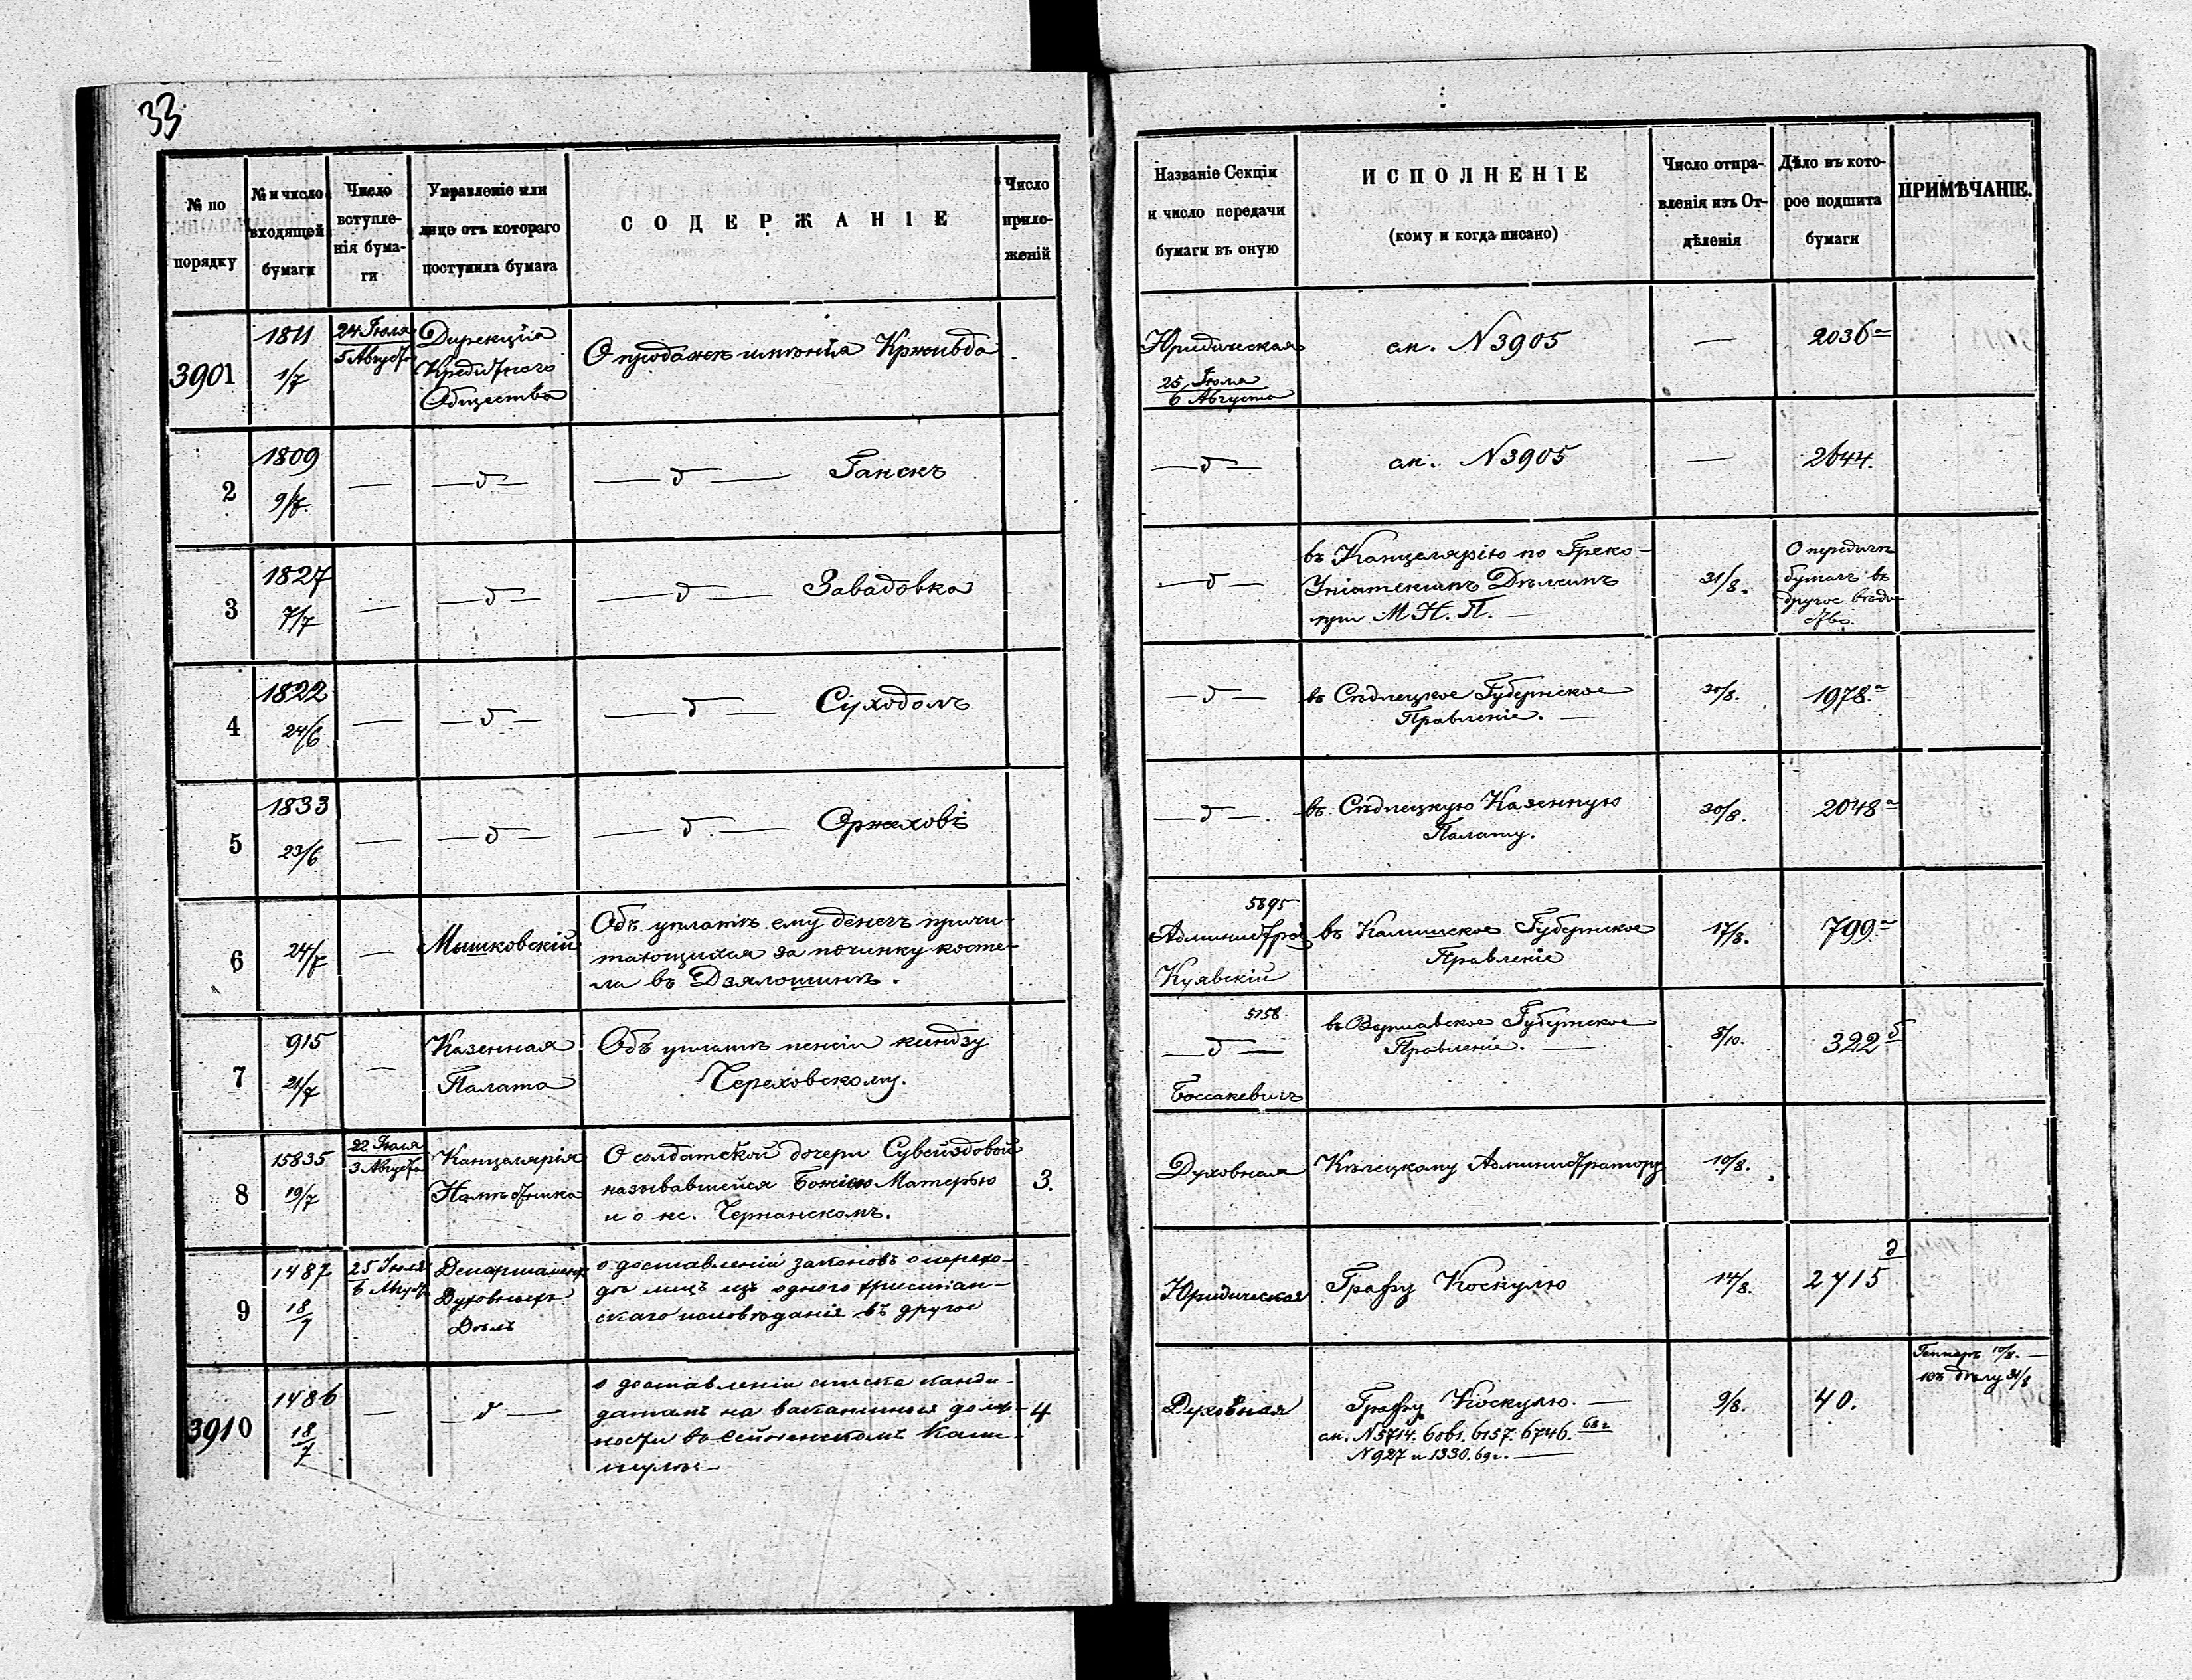 33
№ по порядку
№ и число входящей бумаги
Число вступле-нія бума-ги
Управленіе или лице отъ котораго поступила бумага
СОДЕРЖАНІЕ
Число прило-женій
Названіе Секціи и число передачи бумаги въ оную
ИСПОЛНЕНІЕ
(кому и когда писано)
Число отпра-вленія изъ От-дѣленія
Дѣло въ кото-рое подшита бумаги
ПРИМѢЧАНІЕ.
3901
1811
1/7
24 Іюля
5 Августа
Дирекція
Кредитнаго
Общества
О продажѣ имѣнія Кржывда
Юридическая
25 Іюля
6 Августа
см. N 3905
—
2036 а
2
1809
9/7.
—
— d —
— d — Ганскъ
— d —
см. N 3905
—
2644.
3
1827
7/7
—
— d —
— d — Завадовка
— d —
въ Канцелярію по Греко-
Уніатскимъ Дѣламъ
при М. Н. П. —
31/8.
О передачѣ
бумагъ въ
другое вѣдом
ство.
4
1822
24/6
—
— d —
— d — Суходолъ
— d —
въ Сѣдлецкое Губернское
Правленіе. —
30/8.
1978. а
5
1833
23/6
—
— d —
— d. — Оржеховъ
— d —.
въ Сѣдлецкую Казенную
Палату.
30/8.
2048 а
6
24/7
—
Мышковскій
Объ уплатѣ ему денегъ причи-
тающихся за починку косте-
ла въ Дзялошинѣ.
5895
Администрац
Куявскій
въ Калишское Губернское
Правленіе
17/8.
799. а
7
915
21/7
—
Казенная
Палата
Объ уплатѣ пенсіи ксендзу
Череховскому.
5158.
— d —
Боссакевичъ
въ Варшавское Губернское
Правленіе. —
8/10.
322 б
8
15835
19/7
22 Іюля
3 Августа
Канцелярія
Намѣстника
О солдатской дочери Сувейздовой
называвшейся Божіею Матерью
и о кс. Чернанскомъ.
3.
Духовная
Кѣлецкому Администратору
10/8.
9
1487
18
7
25 Іюля
6 Авгус
Департаментъ
Духовныхъ
Дѣлъ
о доставленіи законовъ о перехо-
дѣ лицъ изъ одного христіан-
скаго исповѣданія въ другое
Юридическая
Графу Коскулю
14/8.
2715
3910
1486
18
7
—
— d —
о доставленіи списка канди-
датамъ на вакантныя долж-
ности въ Сейненскомъ Капи-
тулѣ. —
4
Духовная
Графу Коскулю. —
см. N 5714. 6061. 6157. 6746. 68 г
N 927 и 1330. 69 г. —
9/8.
40.
10/8. —
дѣлу 31/8